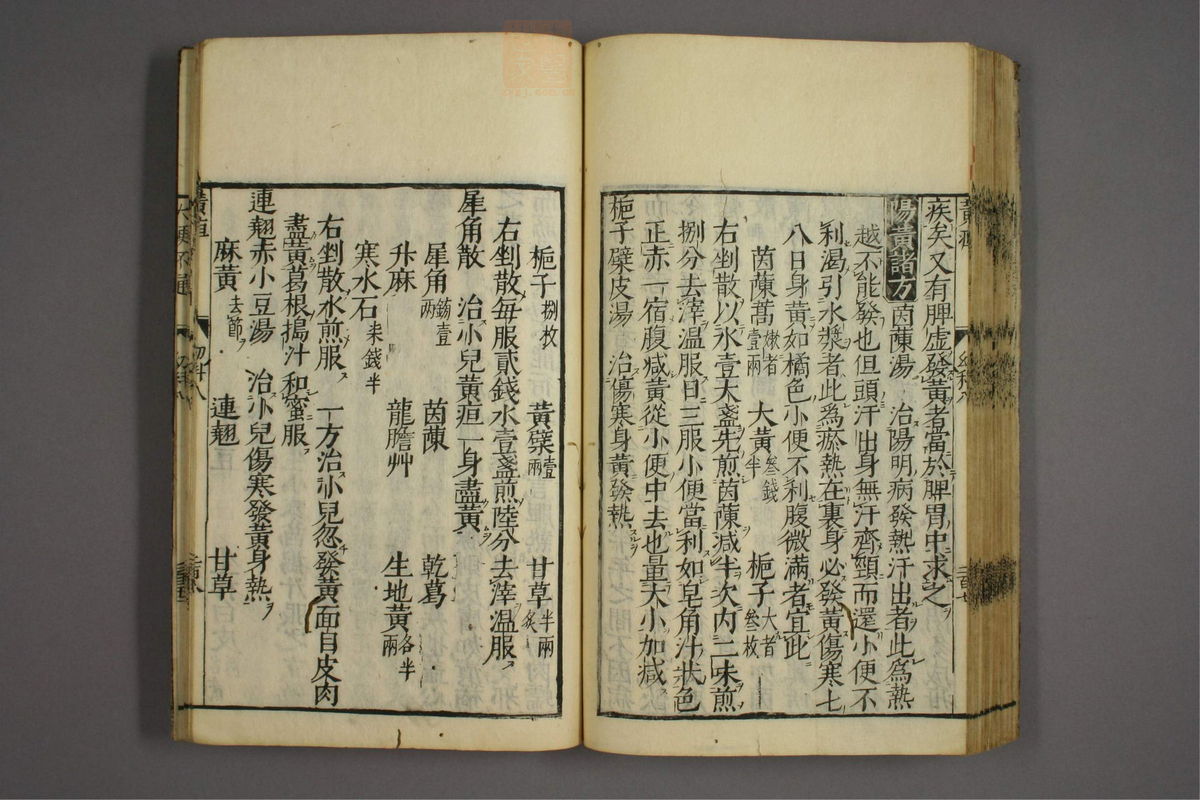 疾矣又有脾虚發黃者當於脾胃中求之
陽黃諸方 茵蔯湯 治陽明病發熱汗出者此爲熱
越不能發也但頭汗出身無汗齊頸而還小便不
利渴引水漿者此爲瘀熱在裏身必發黃傷寒七
八日身黃如橘色小便不利腹微滿者宜此
茵蔯蒿嫩者壹兩 大黃叁錢半 梔子大者叁枚
右剉散以水壹大盞先煎茵蔯減半次内二味煎
捌分去滓温服日三服小便當利如皂角汁狀色
正赤一宿腹減黃從小便中去也量大小加減
梔子檗皮湯 治傷寒身黃發熱
梔子捌枚 黃檗壹兩 甘草半兩炙
右剉散每服貳錢水壹盞煎陸分去滓温服
犀角散 治小兒黃疸一身盡黃
犀角鎊壹兩 茵蔯 乾葛
升麻 龍膽艸 生地黃各半兩
寒水石柒錢半
右剉散水煎服 一方治小兒忽發黃面目皮肉
盡黃葛根搗汁和蜜服
連翹赤小豆湯 治小兒傷寒發黃身熱
麻黃去節 連翹 甘草
黃疸
幼科八